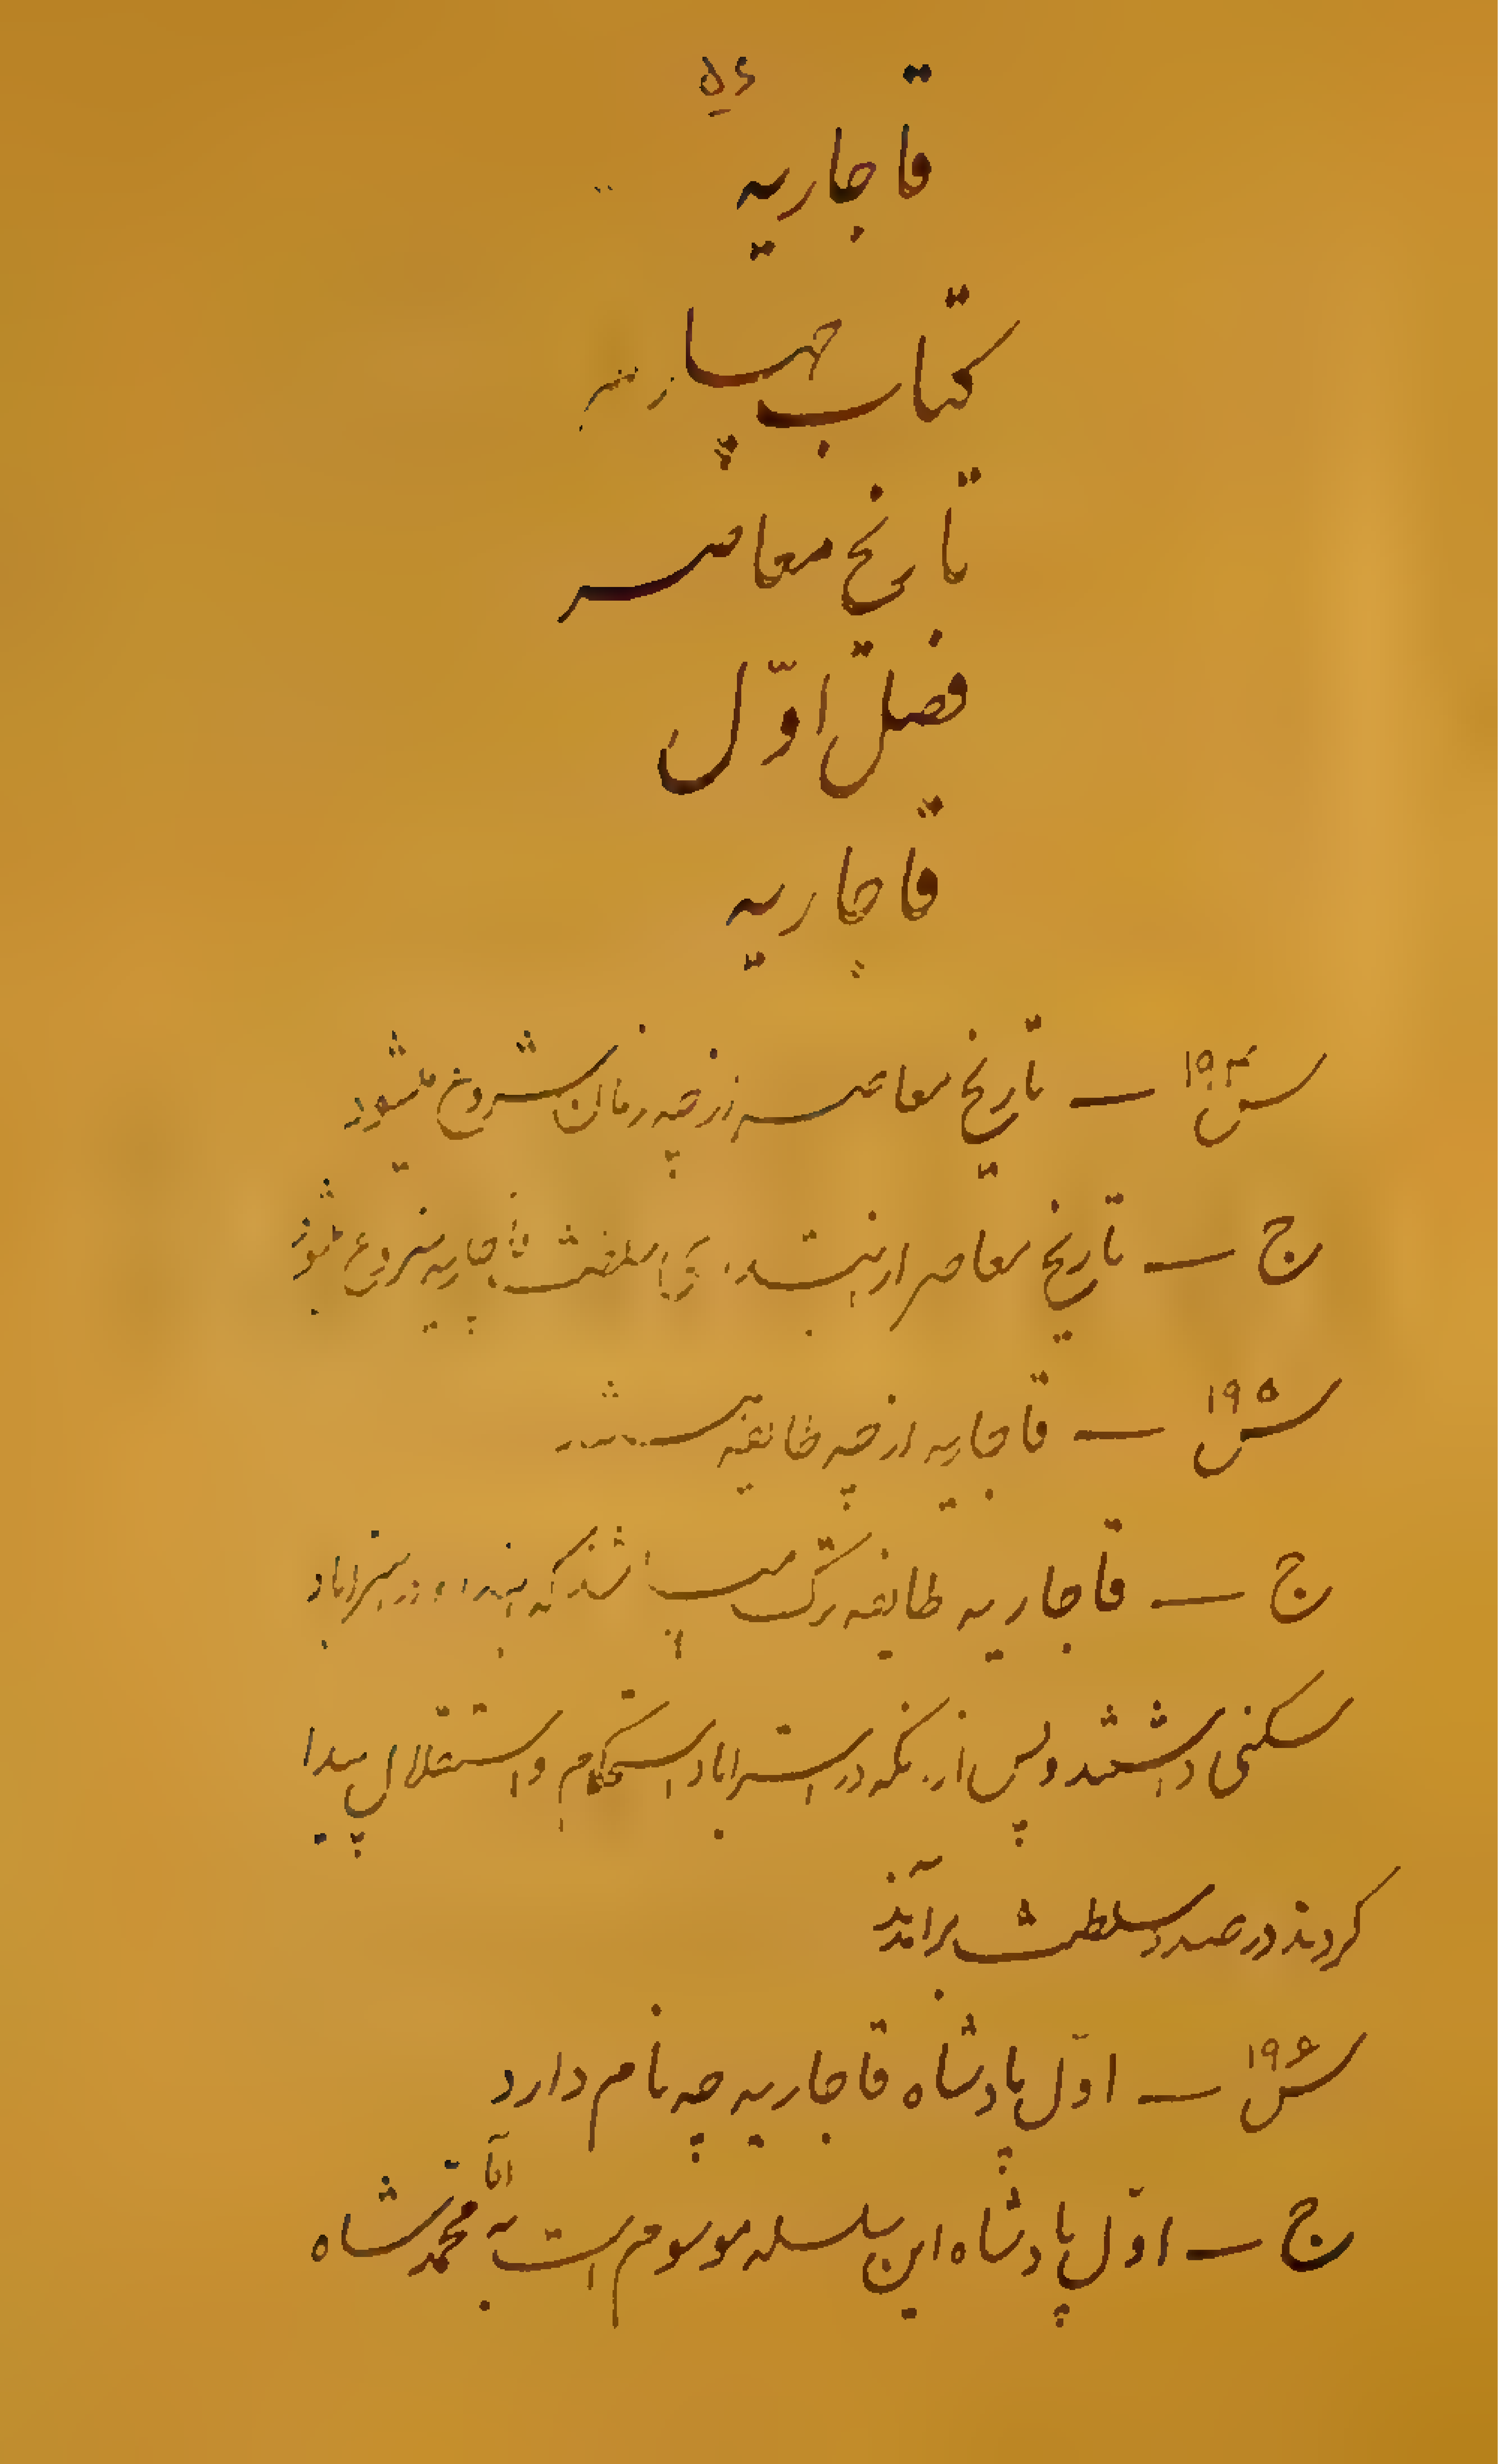 ۵۶
قاجاریه
کتاب چهارم
تاریخ معاصر
فصل اوّل
قاجاریه
س۱۹۴ — تاریخ معاصر از چه زمان شروع میشود
ج — تاریخ معاصر از ابتدای سلطنت قاجاریه شروع میشود
س۱۹۵ — قاجاریه از چه طایفه
ج — قاجاریه طایفه ترک میباشند که ابتداء در استراباد
سکنی داشتند و پس از آنکه در استراباد استحکام و استقلال پیدا
کردند در صدد سلطنت برآمدند
س۱۹۶ — اوّل پادشاه قاجاریه چه نام دارد
ج — اوّل پادشاه این سلسله موسوم است به آقا محمّد شاه